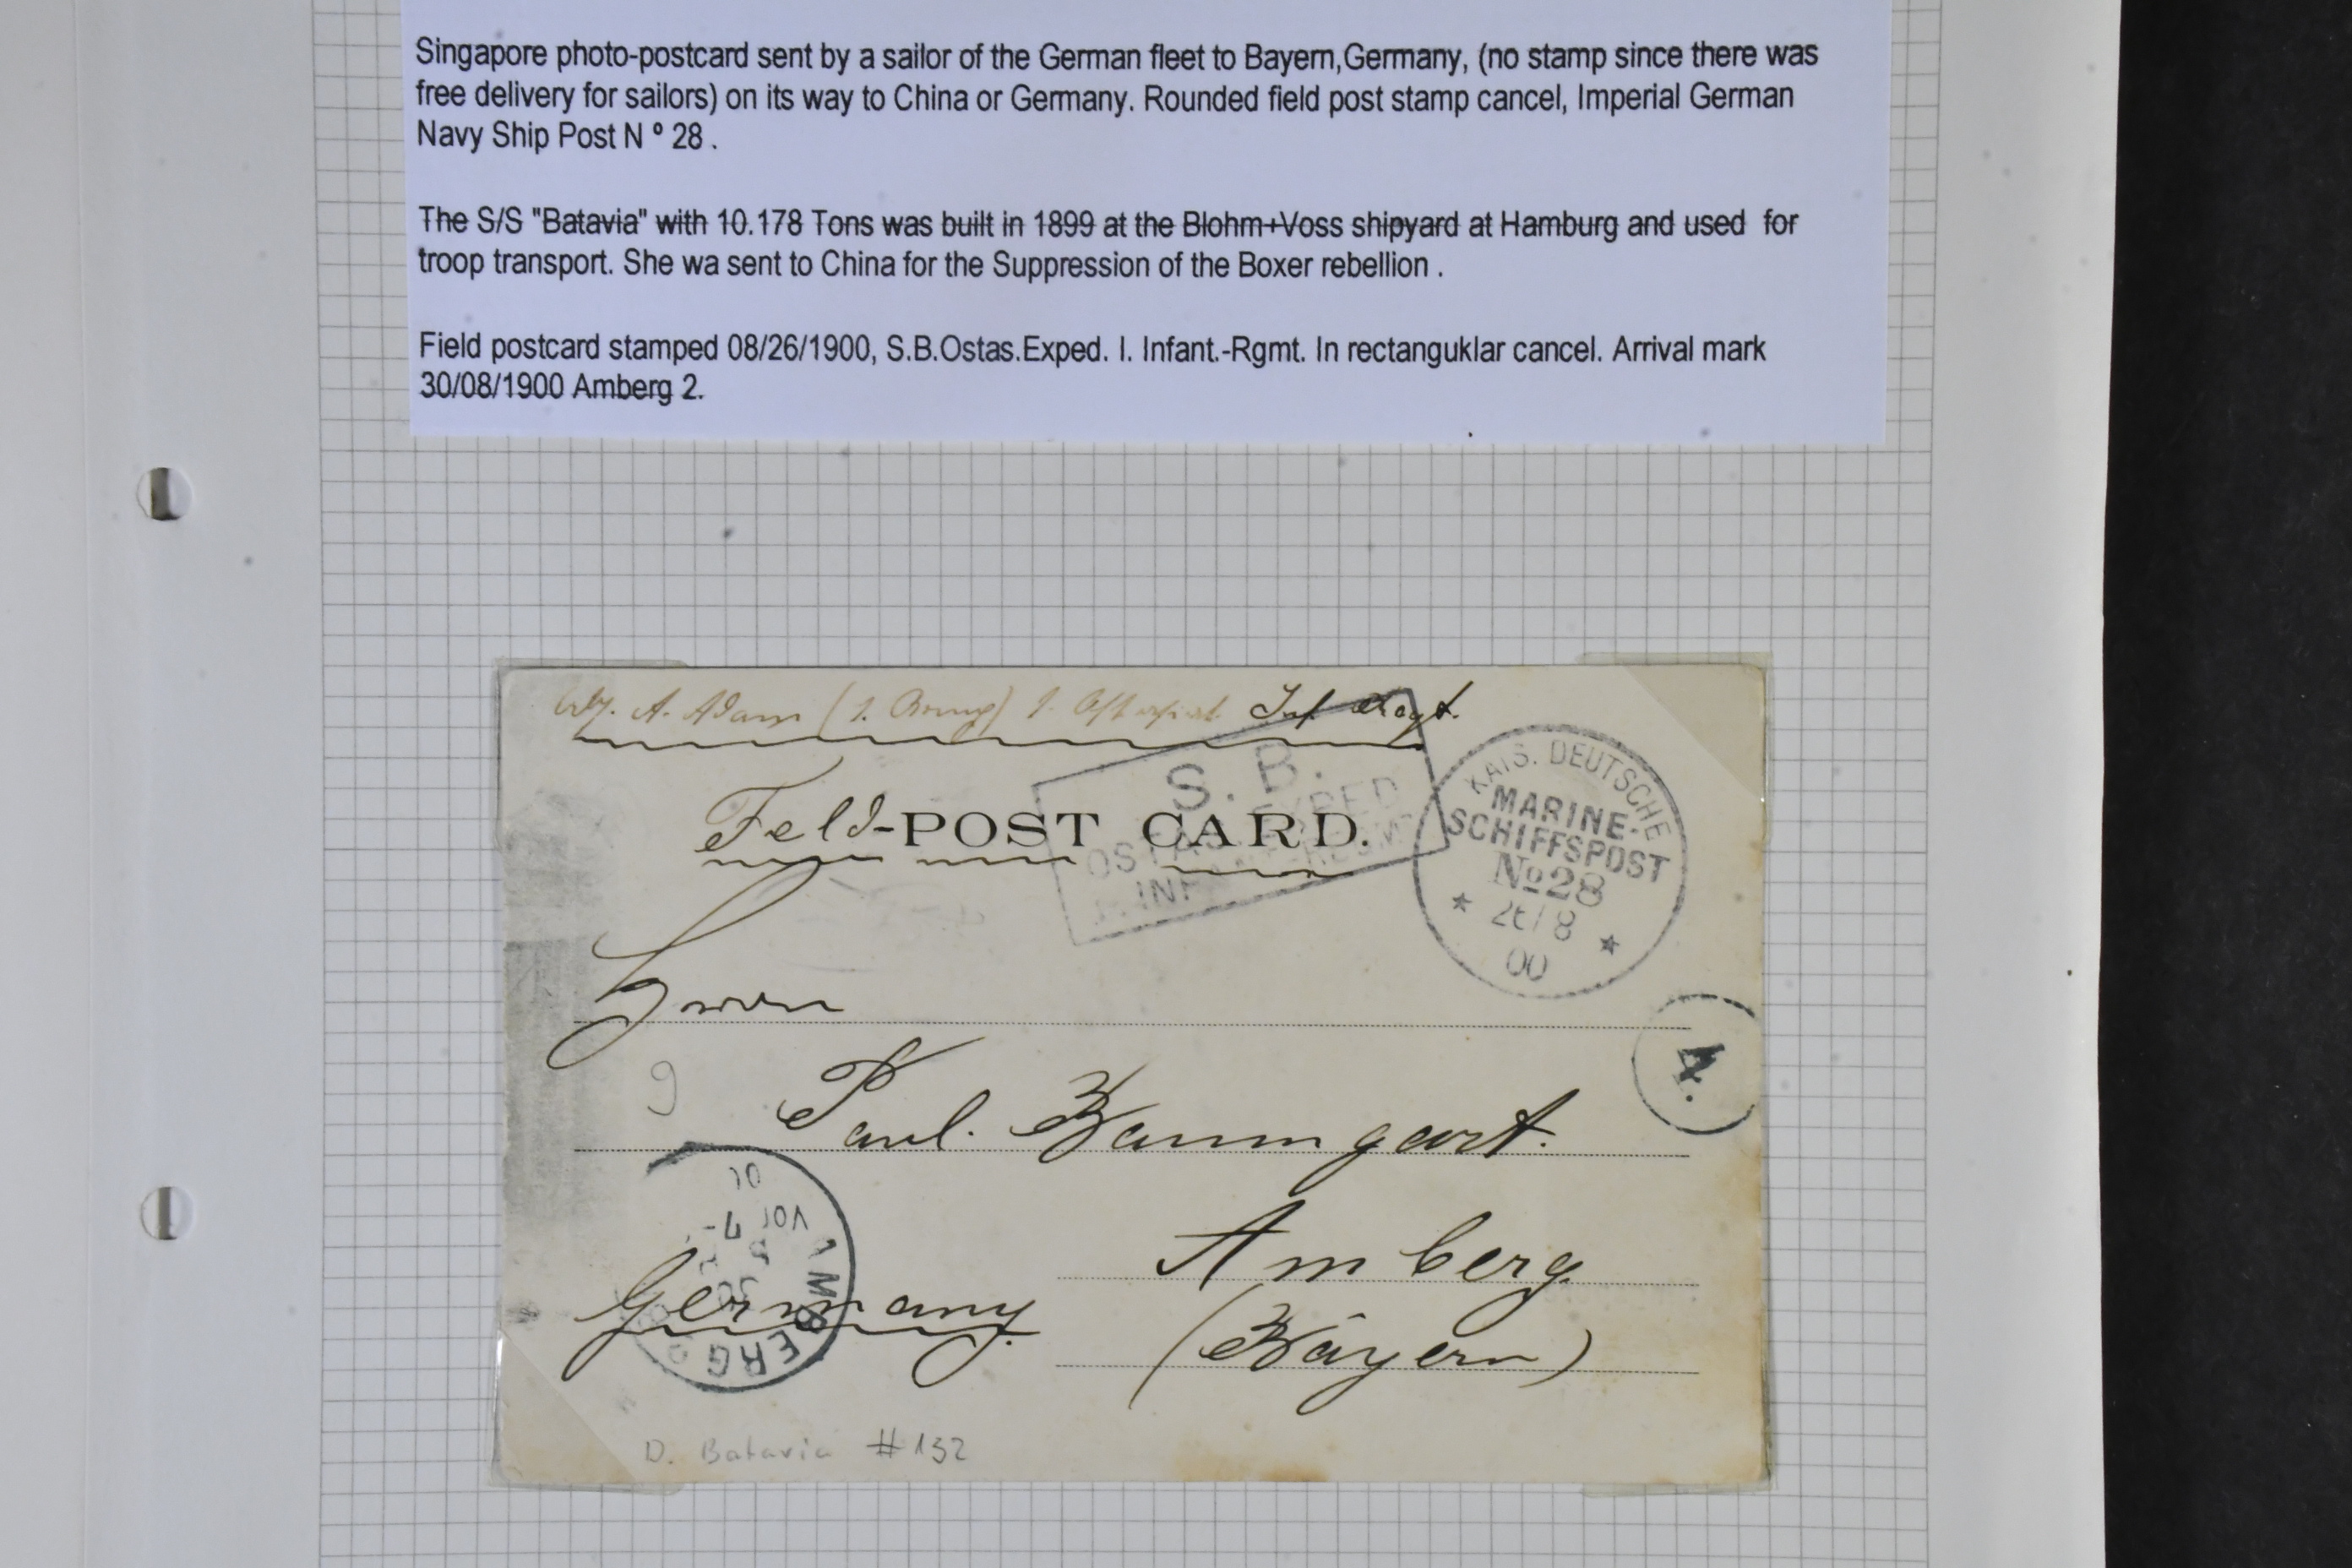 Singapore photo-postcard sent by a sailor of the German fleet to Bayern,Germany, (no stamp since there was
free delivery for sailors) on its way to China or Germany. Rounded field post stamp cancel, Imperial German
Navy Ship Post N º 28 .
The S/S "Batavia" with 10.178 Tons was built in 1899 at the Blohm+Voss shipyard at Hamburg and used for
troop transport. She wa sent to China for the Suppression of the Boxer rebellion .
Field postcard stamped 08/26/1900, S.B.Ostas.Exped. I. Infant.-Rgmt. In rectanguklar cancel. Arrival mark
30/08/1900 Amberg 2.
A. Adam Inf. Regt.
S. B.
OSTAS. EXPED
1. INF REGMT
KAIS. DEUTSCHE
MARINE-
SCHIFFSPOST
No 28
26/8
00
Feld-POST CARD.
Herrn
4.
9
Paul Baumgart.
Amberg
Germany.
(Bayern)
AMBERG 2
VOR 7-
00
D. Batavia #132